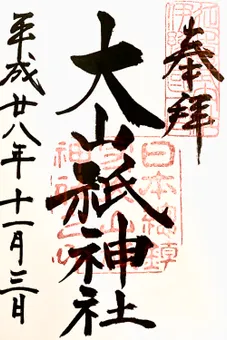 奉拝
大山祇神社
平成廿八年十一月三日
日本總鎮